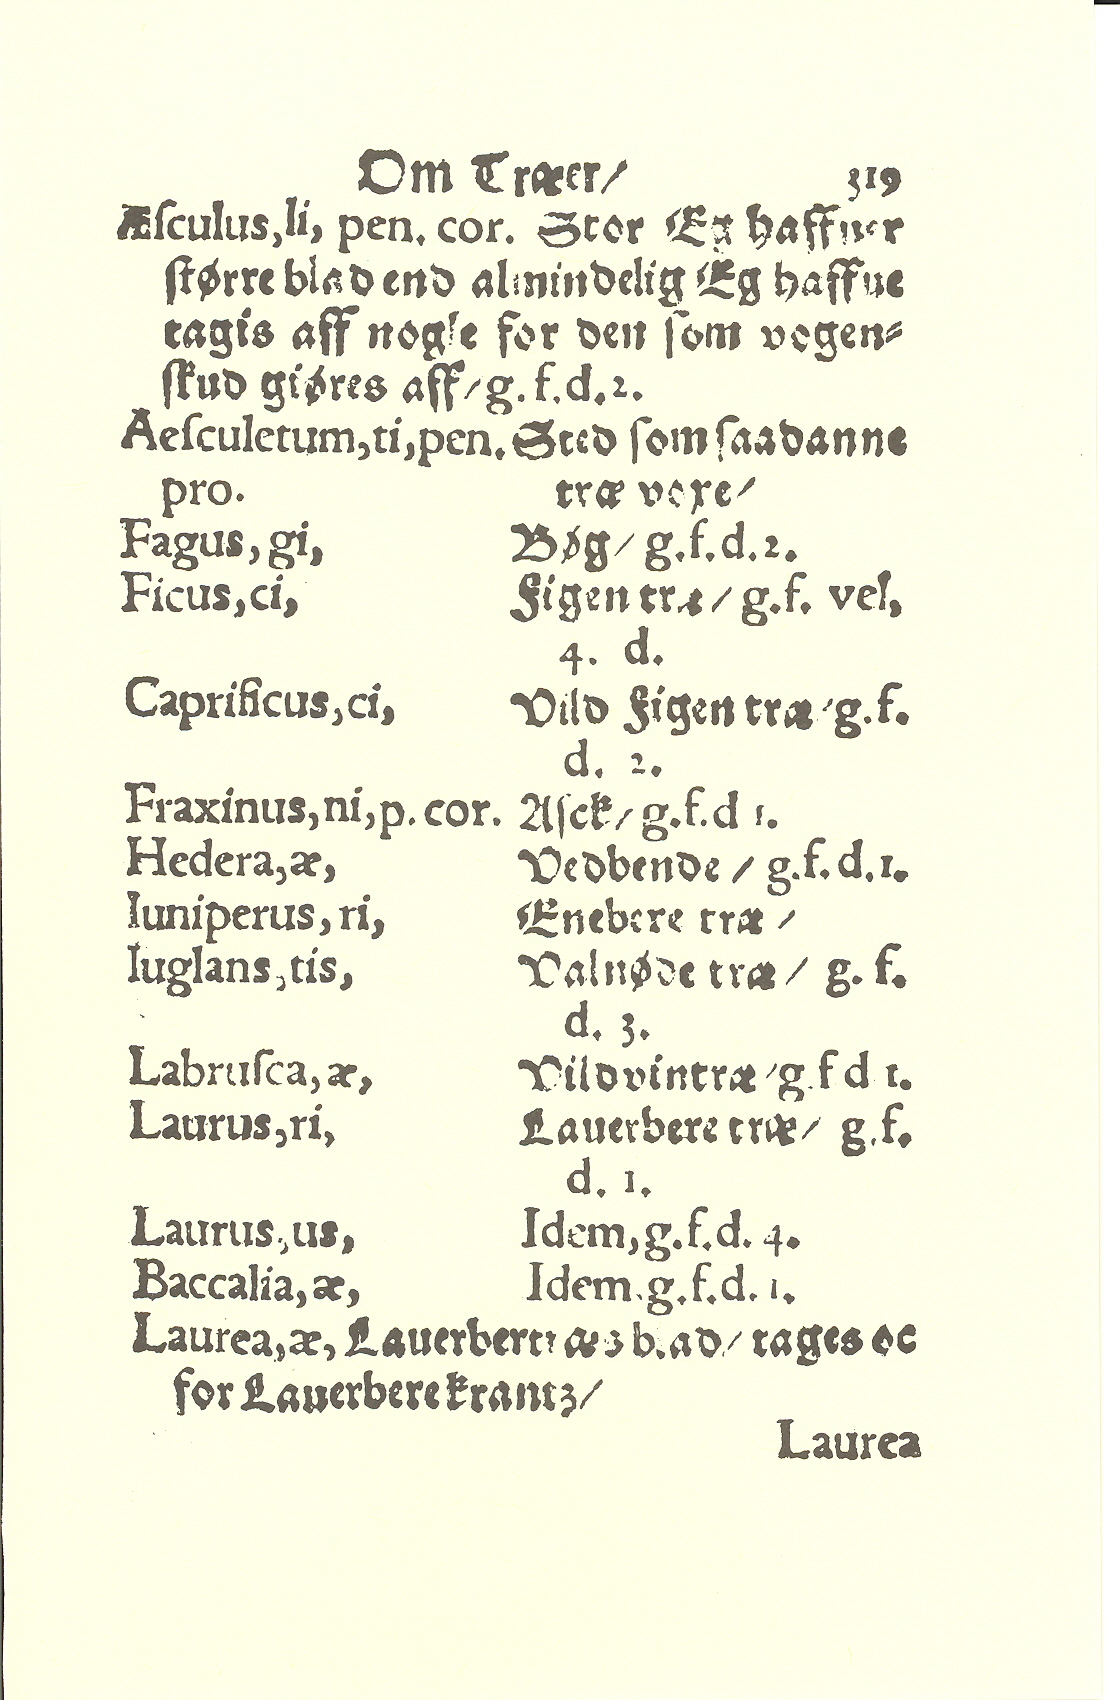 Om Træer/ 319
Æſculus,li, pen. cor. Stor Eg haffuer
ſtørre blad end almindelig Eg haffue
tagis aff nogle for den ſom vogen⸗
ſkud giøres aff/g.f.d.2.
Aeſculetum,ti,pen. Sted ſom ſaadanne
pro. træ voxe/
Fagus, gi, Bøg/ g.f.d.2.
Ficus,ci, Figen træ/ g.f. vel,
4. d.
Caprificus,ci, Vild Figen træ/g.f.
d. 2.
Fraxinus,ni,p. cor. Aſck/g.f.d 1.
Hedera,æ, Vedbende/ g.f.d.1.
Iuniperus, ri, Enebere træ/
Iuglans,tis, Valnøde træ/ g. f.
d. 3.
Labruſca,æ, Vildvintræ/g.f d 1.
Laurus,ri, Lauerbere træ/ g.f.
d. 1.
Laurus,us, Idem,g.f.d. 4.
Baccalia,æ, Idem.g.f.d. 1.
Laurea,æ, Lauerbertræz blad/ tages oc
for Lauerbere krantz/
Laurea